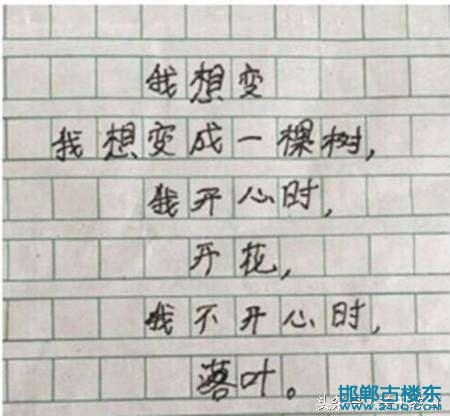 我想变
我想变成一棵树,
我开心时,
开花,
我不开心时,
落叶。
邯郸古楼东
www.24JQ.com